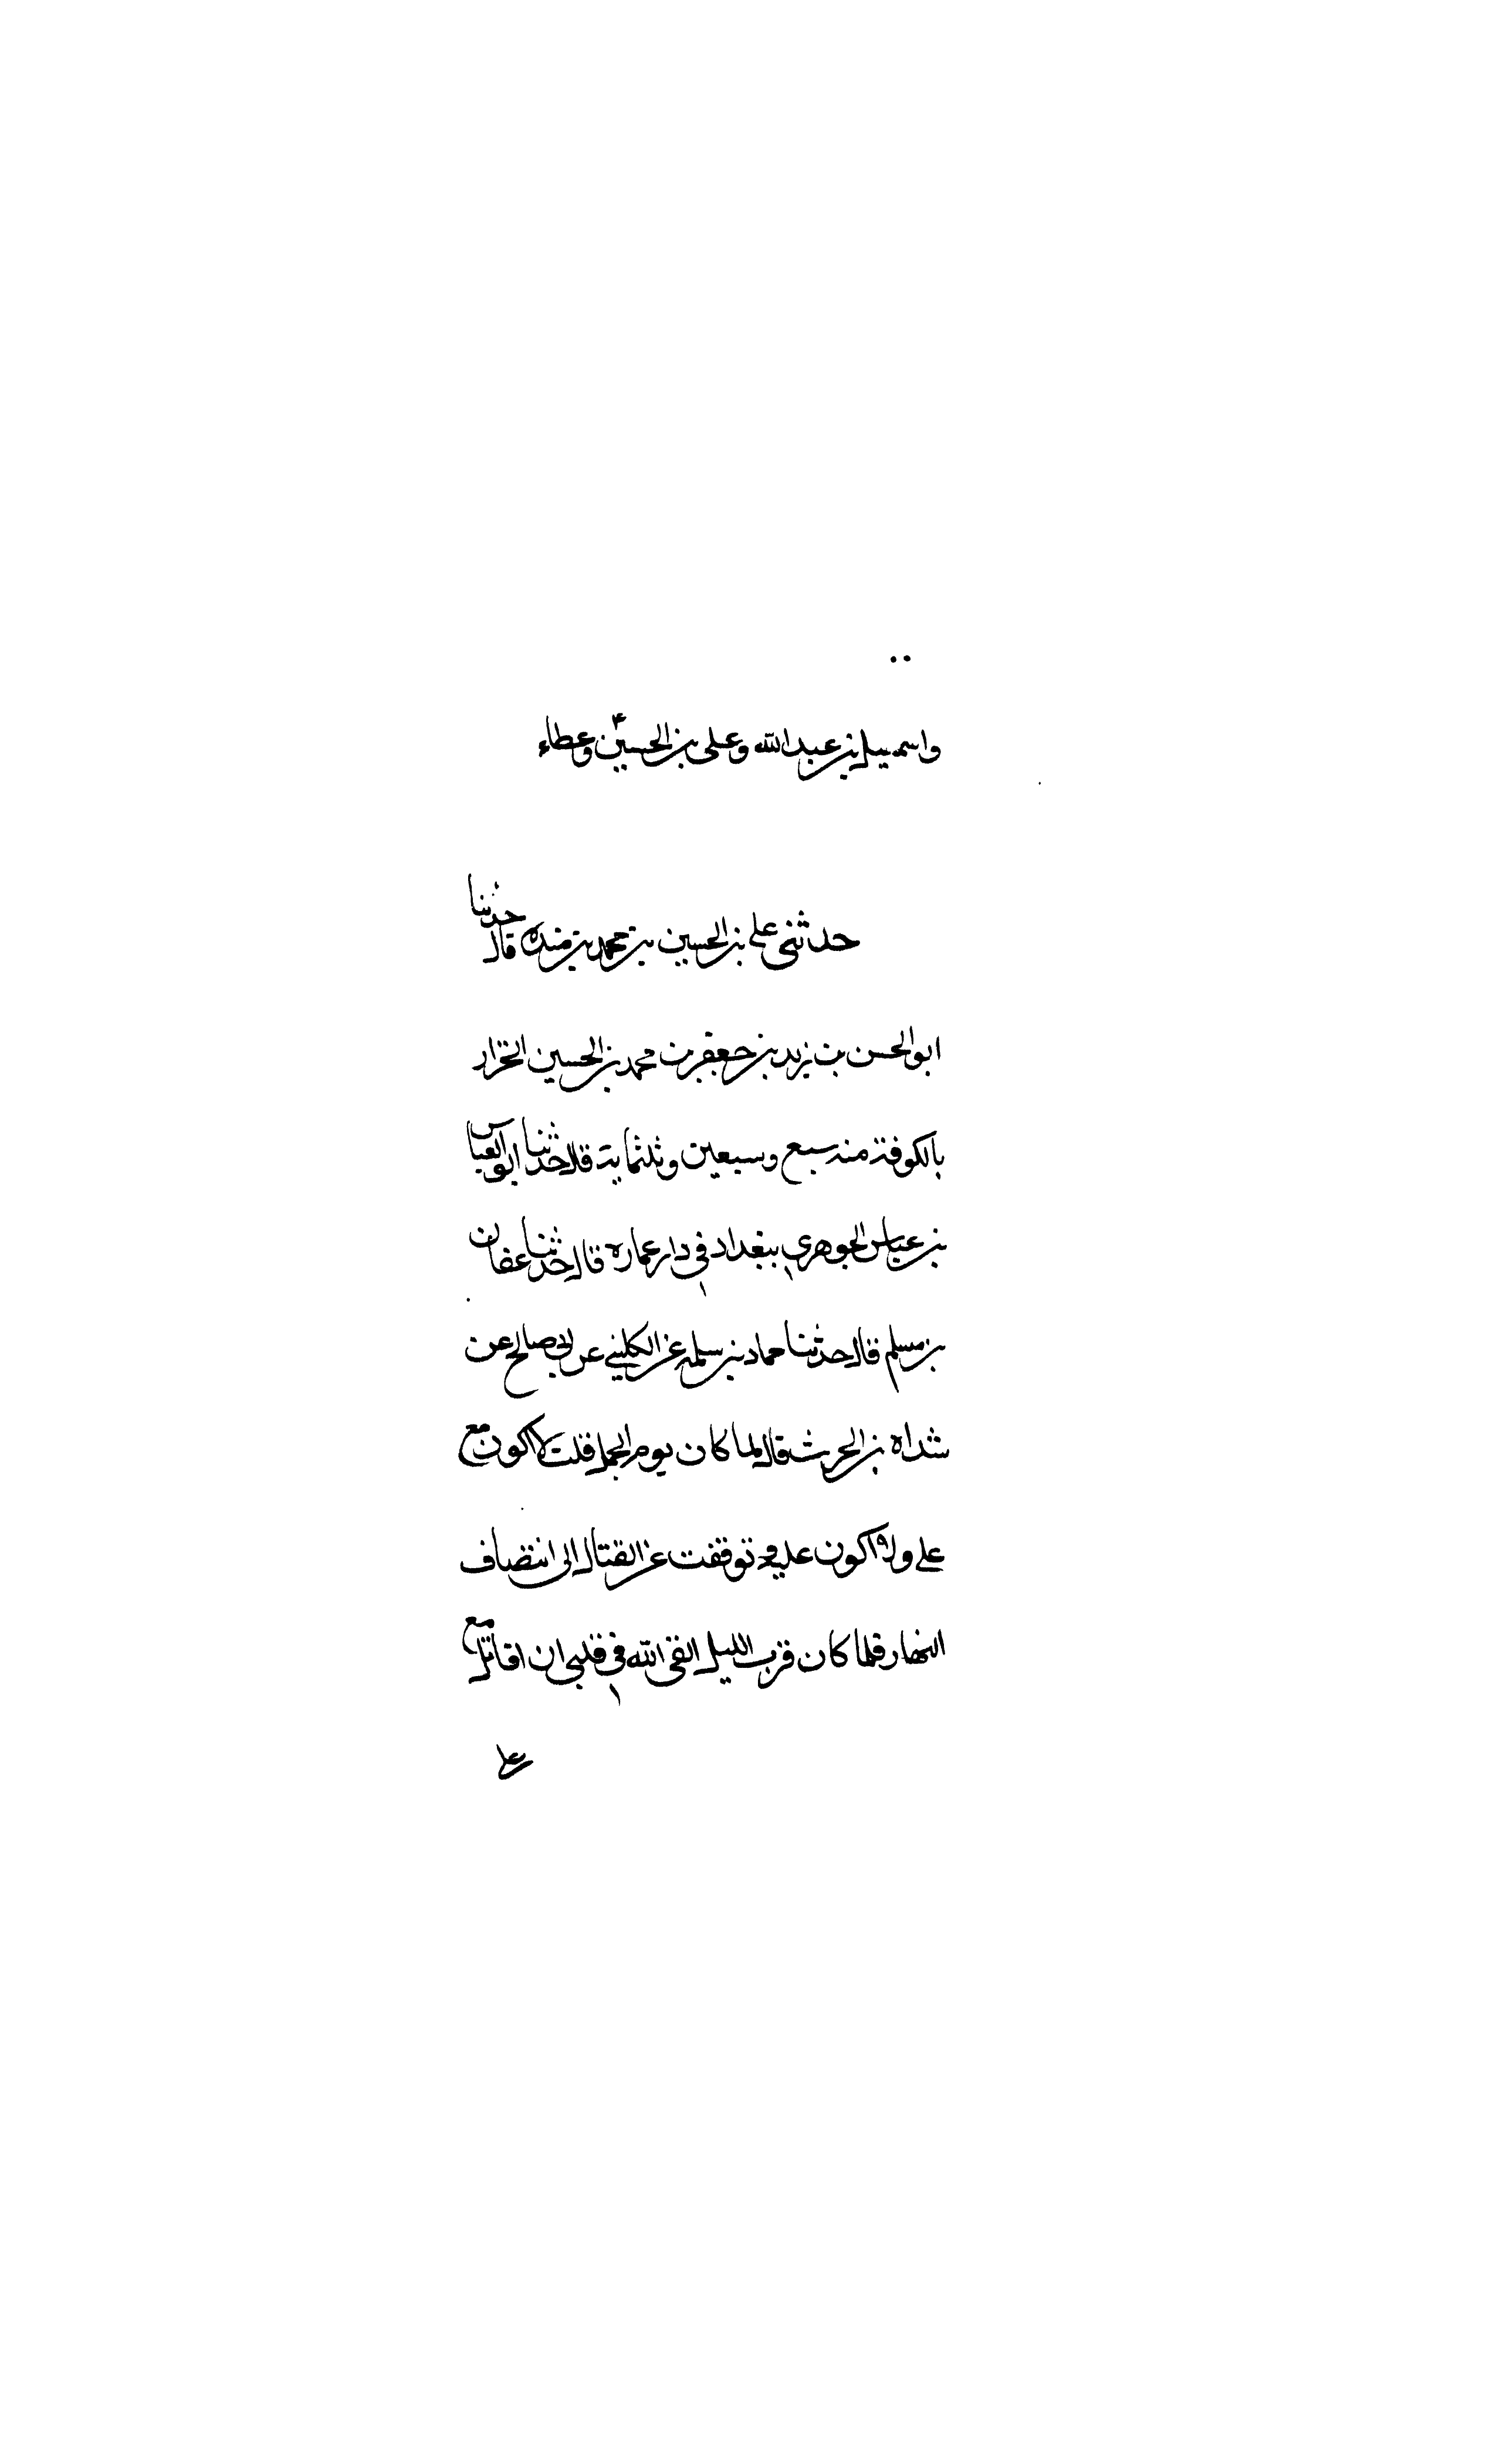 واسمعيل بن عبدالله وعلى بن الحسين وعطاء
حدثني علي بن الحسين بن محمد بن منده قال حدثنا
ابوالحسن بن زيد بن جعفر بن محمد بن الحسين الخزار
بالكوفة سنة سبع وسبعين وثلثمائة قال حدثنا ابوالعباس
بن عباس الجوهري ببغداد في دار عماره قال حدثنا عفان
بن مسلم قال حدثنا حماد بن سلمه عن الكلبي عن ابي صالح عن
شداد بن الحرث قال لما كان يوم الجمل قلت لا اكون مع
علي ولا اكون عليه وتوقفت عن القتال الى انتصاف
النهار فلما كان قرب الليل القى الله في قلبي ان اقاتل مع
علي